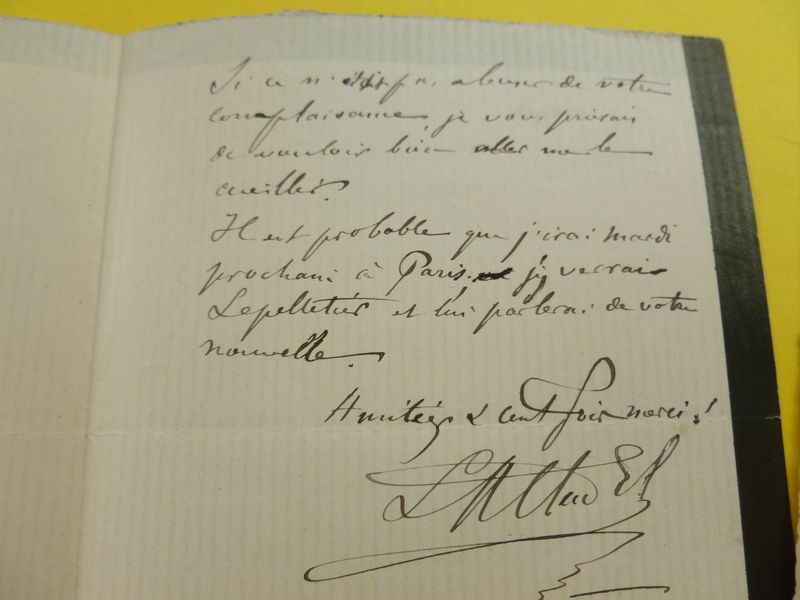 Si ce n'était pas abuser de votre
complaisance je vous prierais
de vouloir bien aller me le
cueillir.
Il est probable que j'irai mardi
prochain à Paris, j'y verrai
Lepelletier et lui parlerai de votre
nouvelle.
Amitiés & cent fois merci !